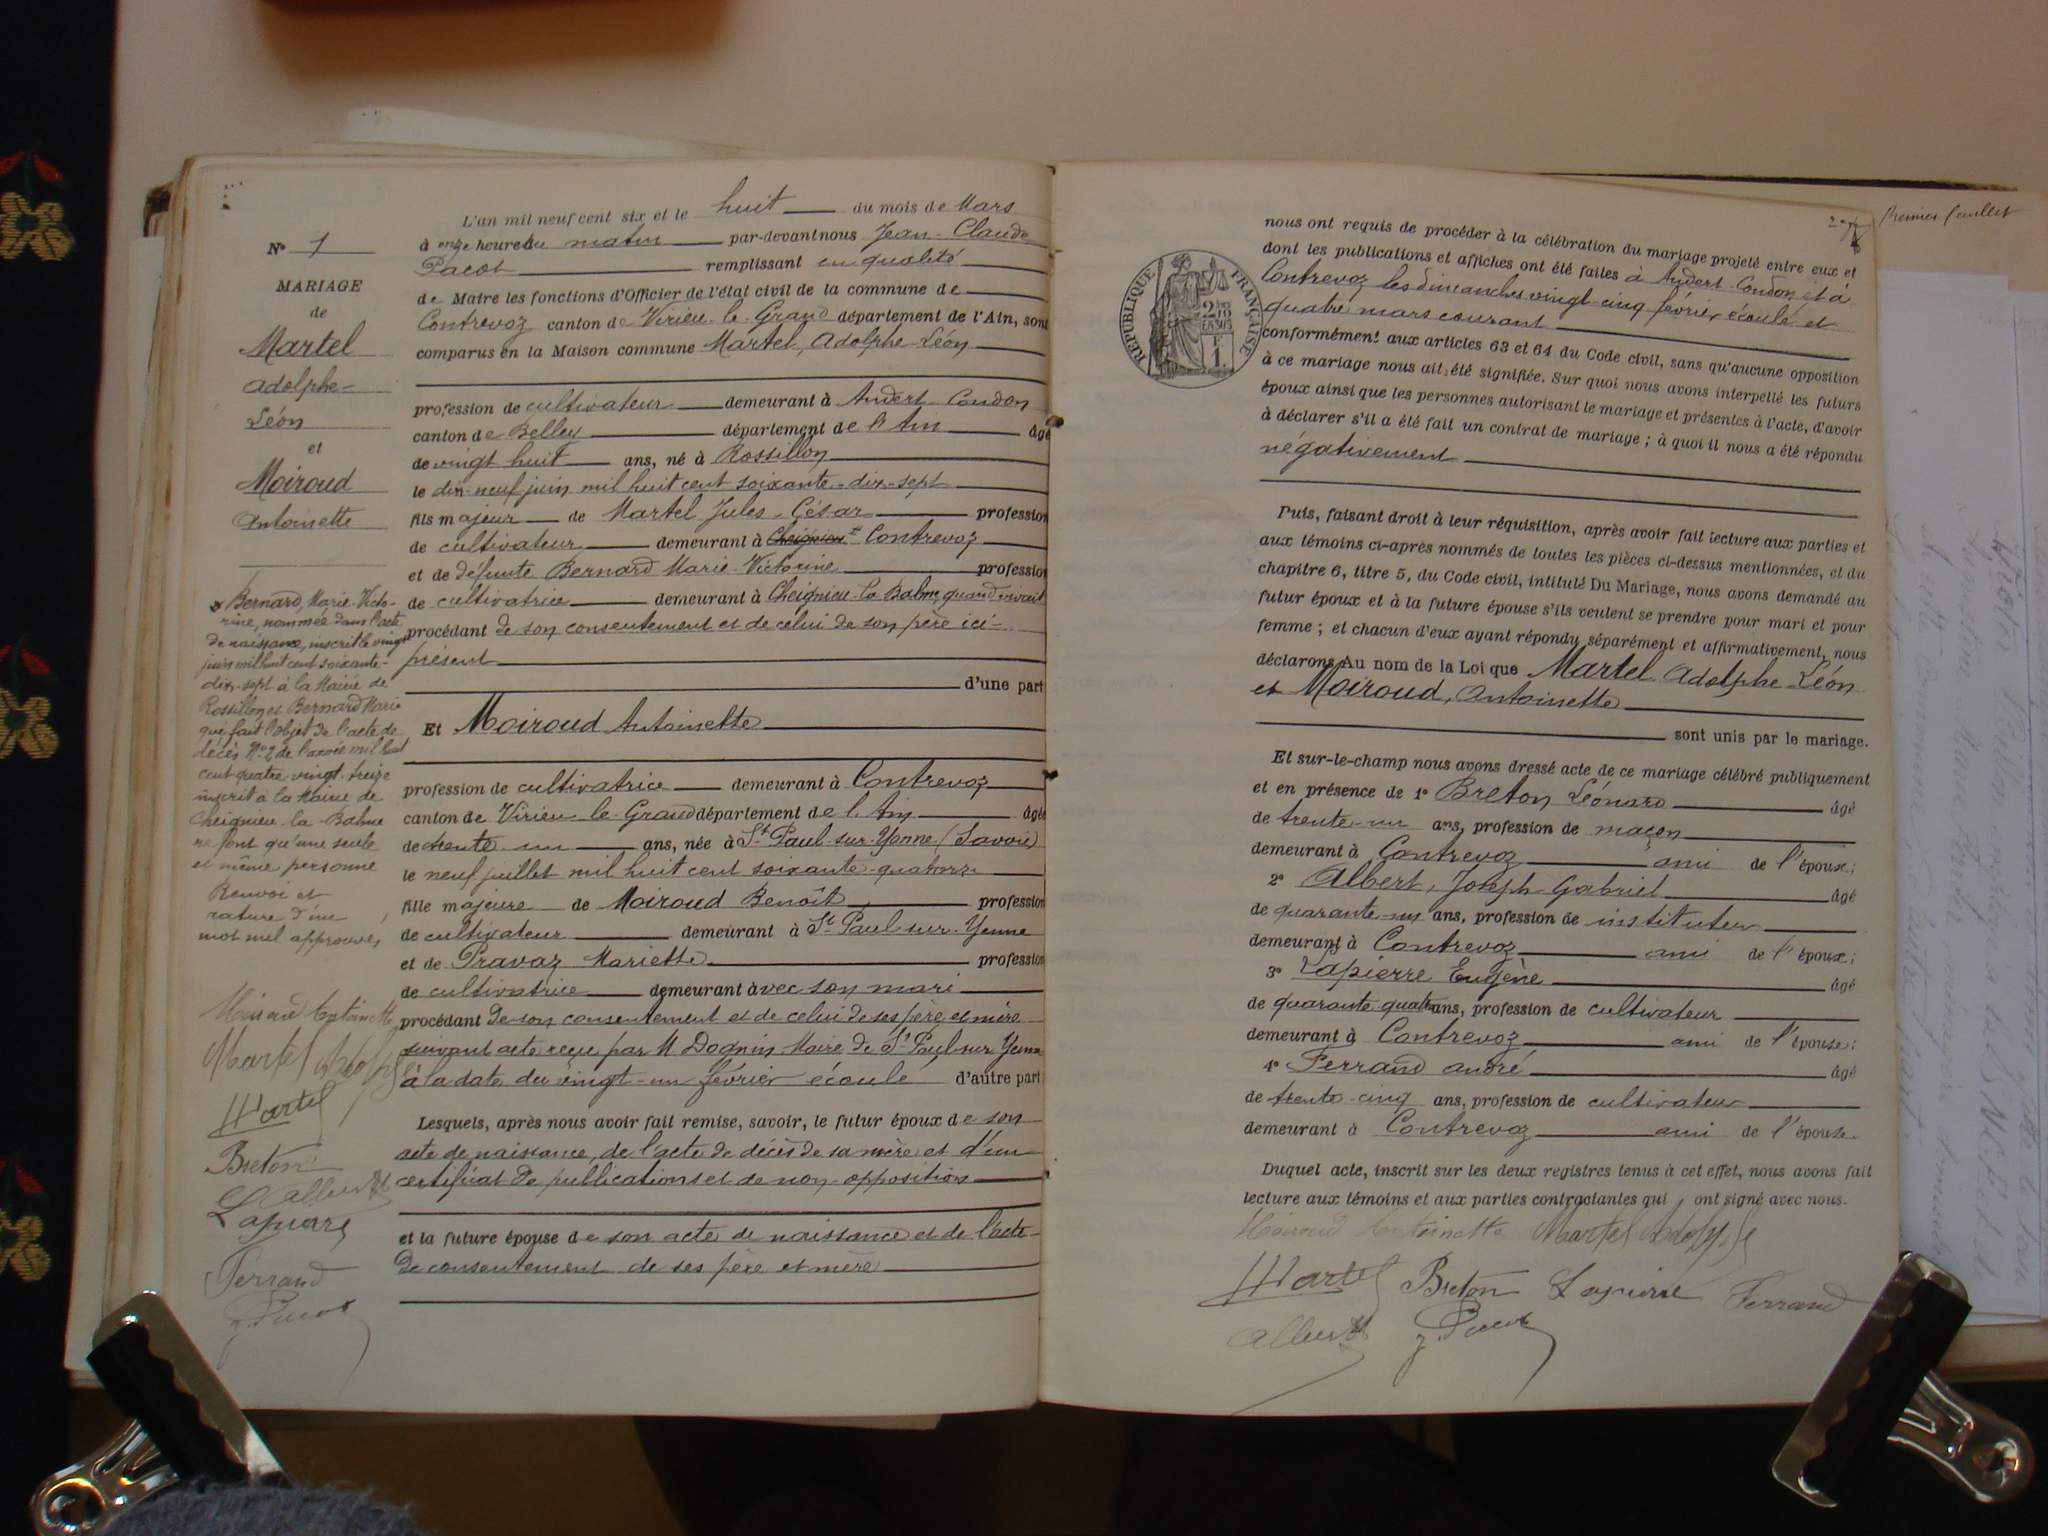 N° 1
MARIAGE
de
Martel
Adolphe-
Léon
et
Moiroud
Antoinette
L'an mil neuf cent six et le huit du mois de Mars
à onze heure du matin par-devant nous Jean-Claude
Pacot remplissant en qualité
de Maire les fonctions d'Officier de l'état civil de la commune de
Contrevoz canton de Virieu-le-Grand département de l'Ain, sont
comparus en la Maison commune Martel, Adolphe-Léon
profession de cultivateur demeurant à Andert-Condon
canton de Belley département de l'Ain âgé
de vingt huit ans, né à Rossillon
le dix-neuf juin mil huit cent soixante-dix-sept
fils majeur de Martel Jules-César profession
de cultivateur demeurant à Cheignieu Contrevoz
et de défunte Bernard Marie-Victorine profession
de cultivatrice demeurant à Cheignieu-la-Balme, quand vivait
procédant de son consentement et de celui de son père ici-
présent
d'une part
Et Moiroud Antoinette
profession de cultivatrice demeurant à Contrevoz
canton de Virieu-le-Grand département de l'Ain âgée
de trente-un ans, née à St Paul-sur-Yenne (Savoie)
le neuf juillet mil huit cent soixante-quatorze
fille majeure de Moiroud Benoît profession
de cultivateur demeurant à St Paul-sur-Yenne
et de Pravaz Mariette profession
de cultivatrice demeurant avec son mari
procédant de son consentement et de celui de ses père et mère
suivant acte reçu par M Dognin Maire de St Paul sur Yenne
à la date du vingt-un février écoulé d'autre part
Lesquels, après nous avoir fait remise, savoir, le futur époux de son
acte de naissance, de l'acte de décès de sa mère et d'un
certificat de publications et de non-opposition
et la future épouse de son acte de naissance et de l'acte
de consentement de ses père et mère
x Bernard, Marie-Victo-
rine, nommée dans l'acte
de naissance, inscrit le vingt
juin mil huit cent soixante-
dix-sept à la Mairie de
Rossillon et Bernard Marie
qui fait l'objet de l'acte de
décès N° 2 de l'année mil huit
cent quatre-vingt-treize
inscrit à la Mairie de
Cheignieu-la-Balme
ne font qu'une seule
et même personne
Renvoi et
rature d'un
mot nul approuvés
Moiroud Antoinette
Martel Adolphe
Martel
Breton
Albert
Lapierre
Ferrand
J. Pacot
2 Premier feuillet
RÉPUBLIQUE FRANÇAISE
2/10 EN SUS
1 F
nous ont requis de procéder à la célébration du mariage projeté entre eux et
dont les publications et affiches ont été faites à Andert-Condon et à
Contrevoz les dimanches vingt-cinq février écoulé et
quatre mars courant
conformément aux articles 63 et 64 du Code civil, sans qu'aucune opposition
à ce mariage nous ait été signifiée. Sur quoi nous avons interpellé les futurs
époux ainsi que les personnes autorisant le mariage et présentes à l'acte, d'avoir
à déclarer s'il a été fait un contrat de mariage ; à quoi il nous a été répondu
négativement
Puis, faisant droit à leur réquisition, après avoir fait lecture aux parties et
aux témoins ci-après nommés de toutes les pièces ci-dessus mentionnées, et du
chapitre 6, titre 5, du Code civil, intitulé Du Mariage, nous avons demandé au
futur époux et à la future épouse s'ils veulent se prendre pour mari et pour
femme ; et chacun d'eux ayant répondu séparément et affirmativement, nous
déclarons Au nom de la Loi que Martel Adolphe-Léon
et Moiroud, Antoinette
sont unis par le mariage.
Et sur-le-champ nous avons dressé acte de ce mariage célébré publiquement
et en présence de 1° Breton Léonard âgé
de trente-un ans, profession de maçon
demeurant à Contrevoz ami de l'époux;
2° Albert, Joseph-Gabriel âgé
de quarante-un ans, profession de instituteur
demeurant à Contrevoz ami de l'époux;
3° Lapierre Eugène âgé
de quarante-quatre ans, profession de cultivateur
demeurant à Contrevoz ami de l'épouse;
4° Ferrand André âgé
de trente-cinq ans, profession de cultivateur
demeurant à Contrevoz ami de l'épouse
Duquel acte, inscrit sur les deux registres tenus à cet effet, nous avons fait
lecture aux témoins et aux parties contractantes qui ont signé avec nous.
Moiroud Antoinette Martel Adolphe
Martel Breton Lapierre Ferrand
Albert J. Pacot